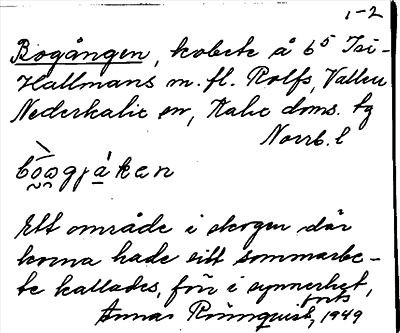 1-2
Bogången, kobete å 6⁵ Isi-
Hallmans m. fl. Rolfs, Vallen
Nederkalix sn, Kalix doms. fg
Norrb. l
Ett område i skogen där
korna hade sitt sommarbe-
te kallades, förr i synnerhet,
forts
Annas Rönnquist, 1949